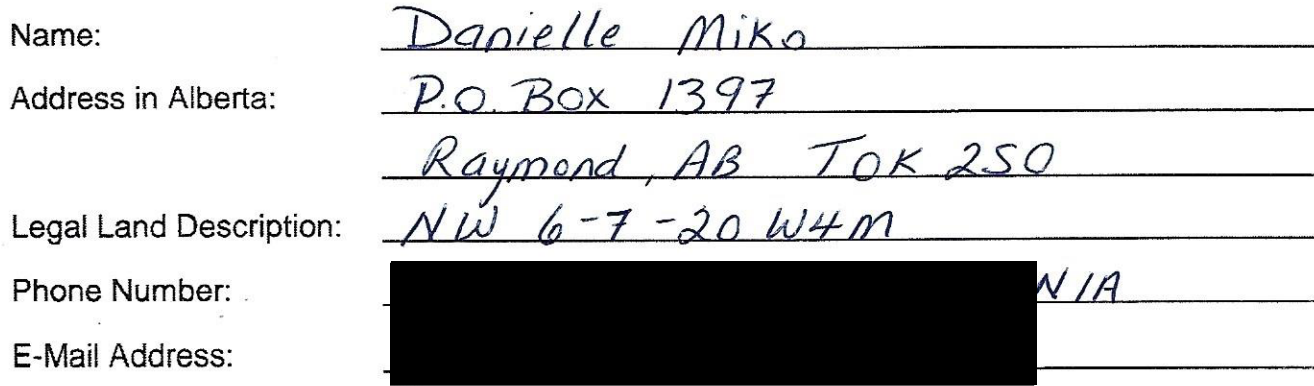 Name: Danielle Miko
Address in Alberta: P.O. Box 1397
Raymond, AB T0K 2S0
Legal Land Description: NW 6-7-20 W4M
Phone Number: N/A
E-Mail Address: